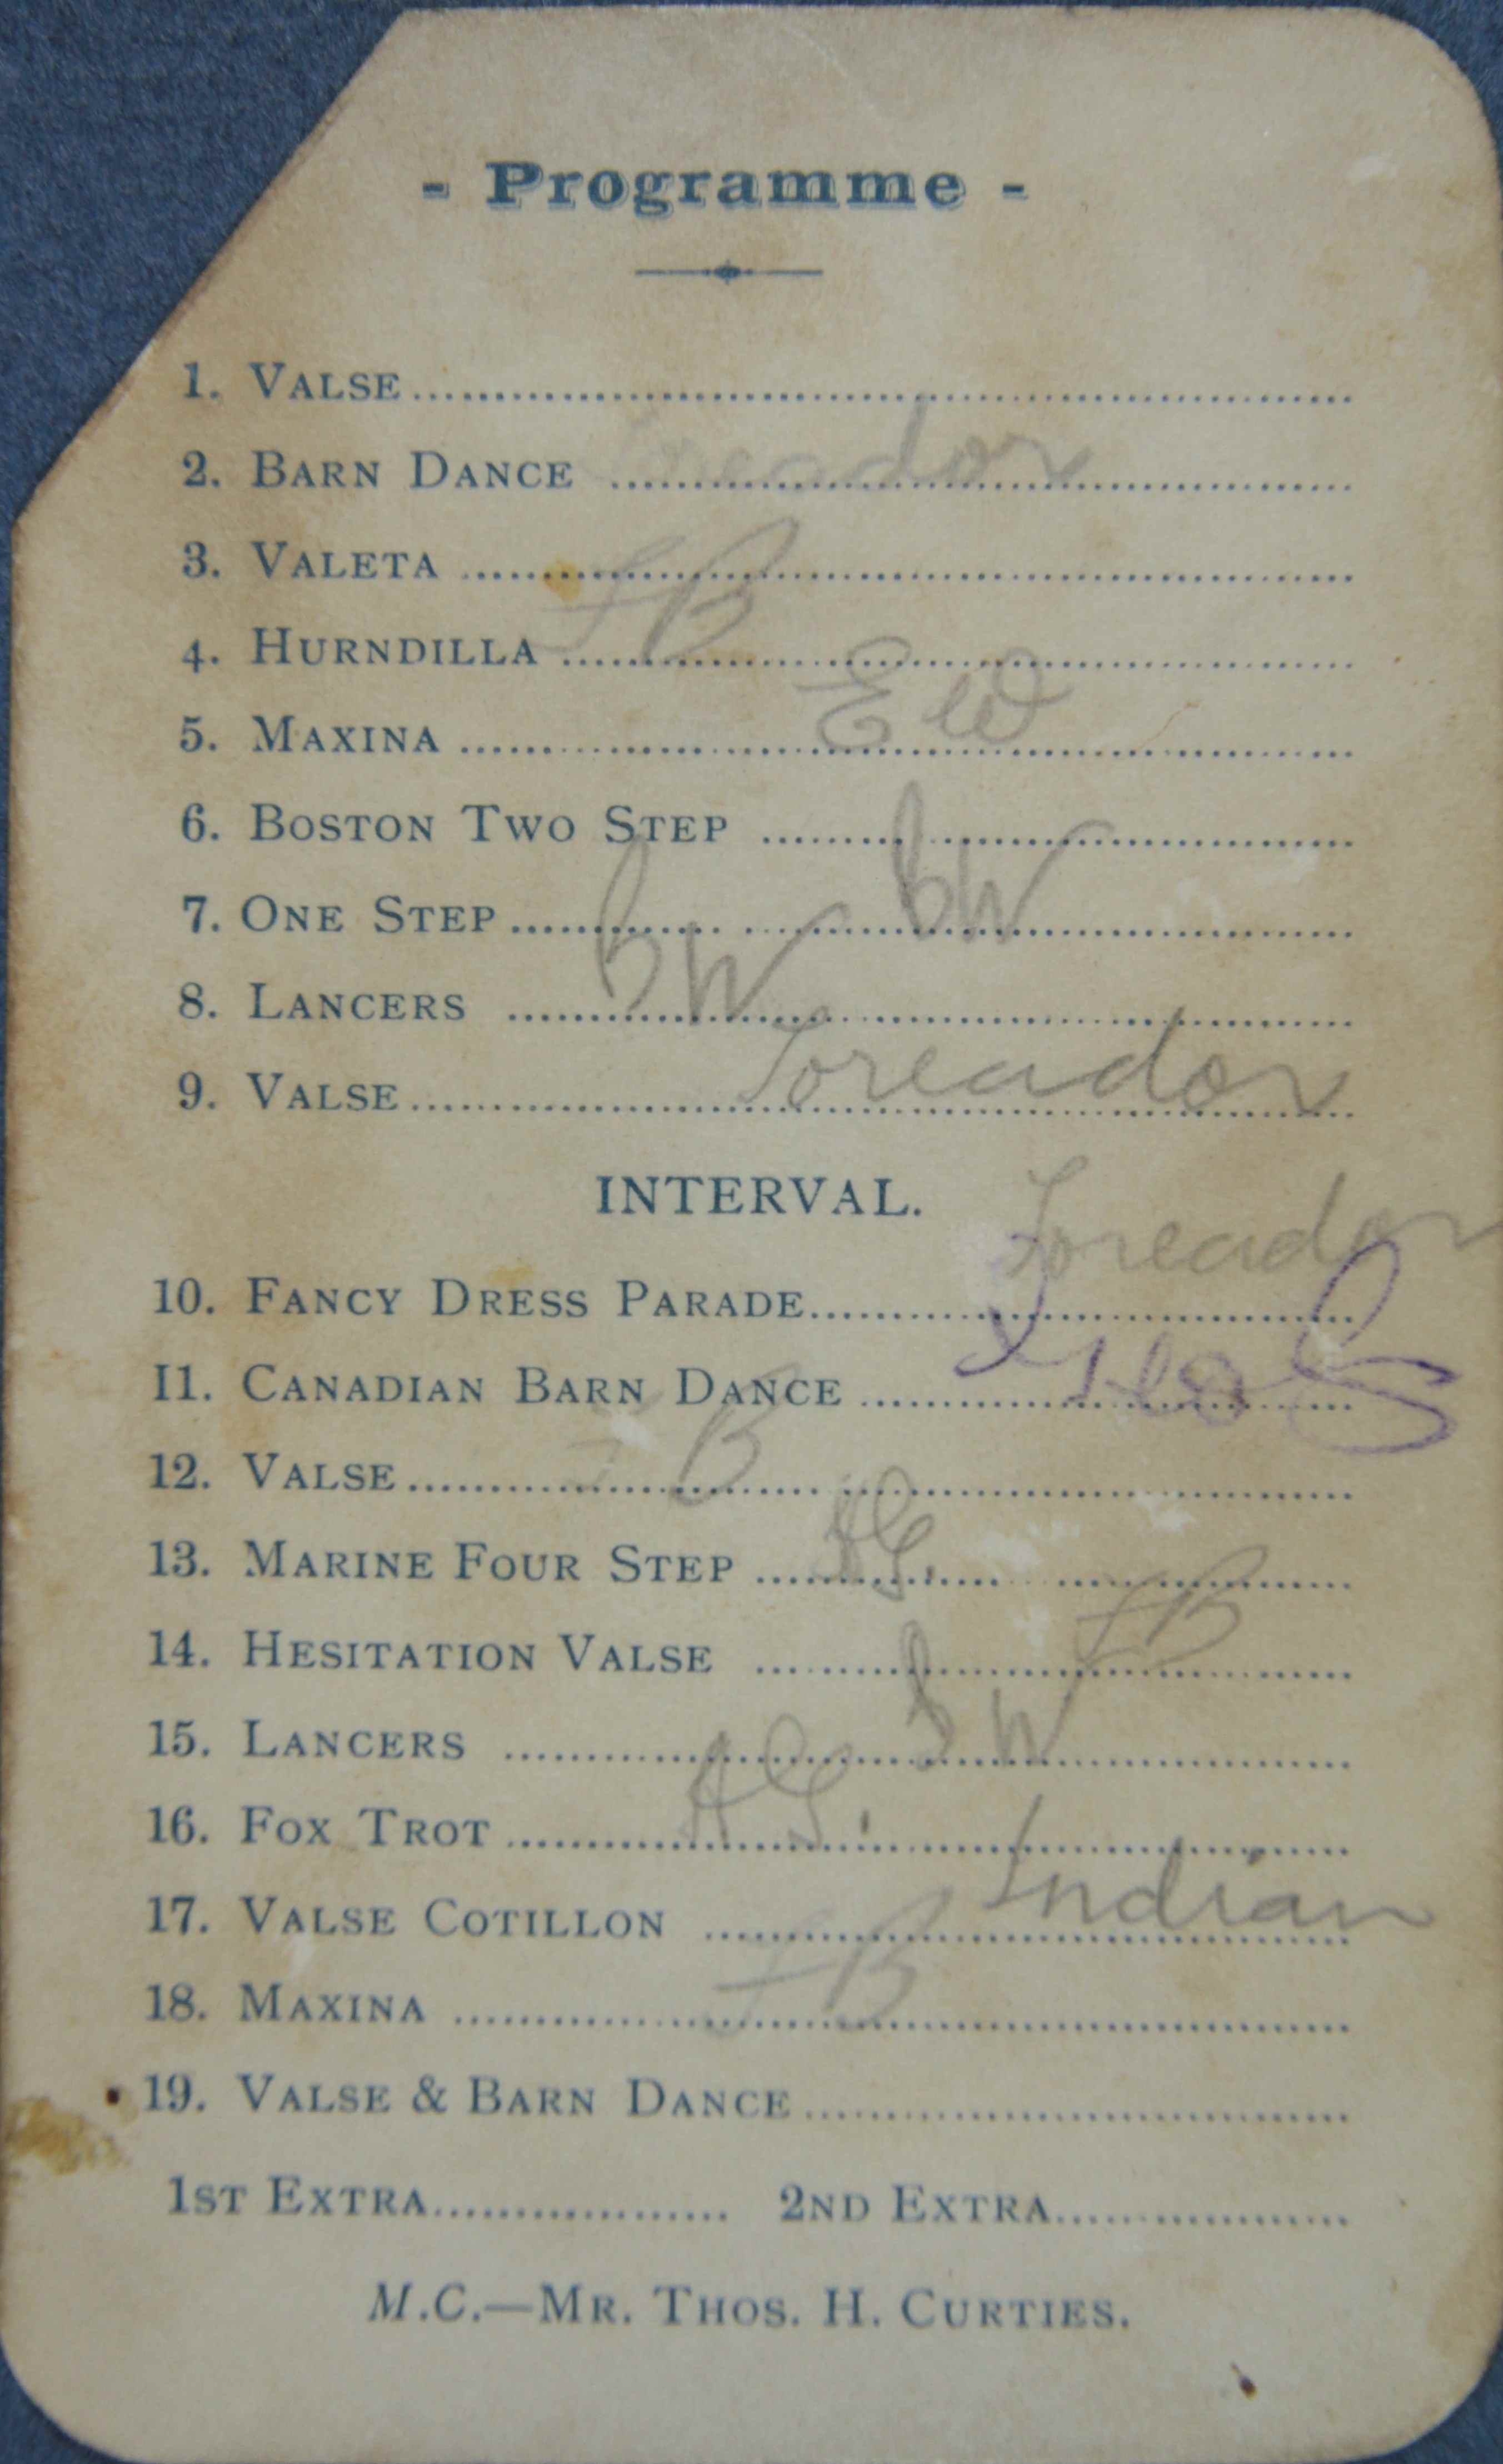 - Programme -
1. VALSE
2. BARN DANCE
3. VALETA
4. HURNDILLA
FB
5. MAXINA
EW
6. BOSTON TWO STEP
7. ONE STEP
8. LANCERS
9. VALSE Toreador
INTERVAL.
Toreador
10. FANCY DRESS PARADE
11. CANADIAN BARN DANCE
12. VALSE
13. MARINE FOUR STEP AG.
14. HESITATION VALSE FB
15. LANCERS
16. FOX TROT AG.
17. VALSE COTILLON Indian
18. MAXINA FB
19. VALSE & BARN DANCE
1ST EXTRA 2ND EXTRA
M.C.—MR. THOS. H. CURTIES.